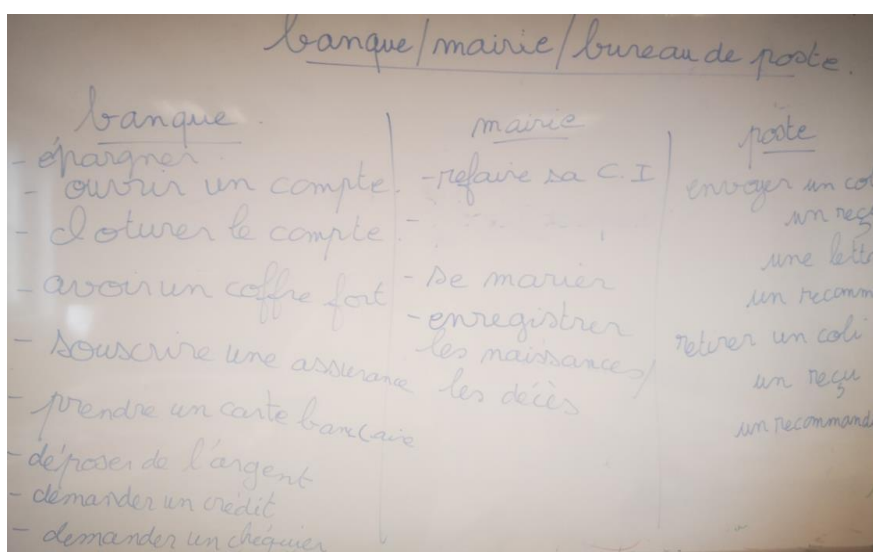 banque/mairie/bureau de poste.
banque
- épargner
- ouvrir un compte.
- cloturer le compte
- avoir un coffre fort
- souscrire une assurance
- prendre un carte bancaire
- déposer de l'argent
- demander un crédit
- demander un chéquier
mairie
- refaire sa C.I
-
- se marier
- enregistrer
les naissances/
les décès
poste
envoyer un col
un reç
une lett
un recomm
retirer un coli
un reçu
un recommand